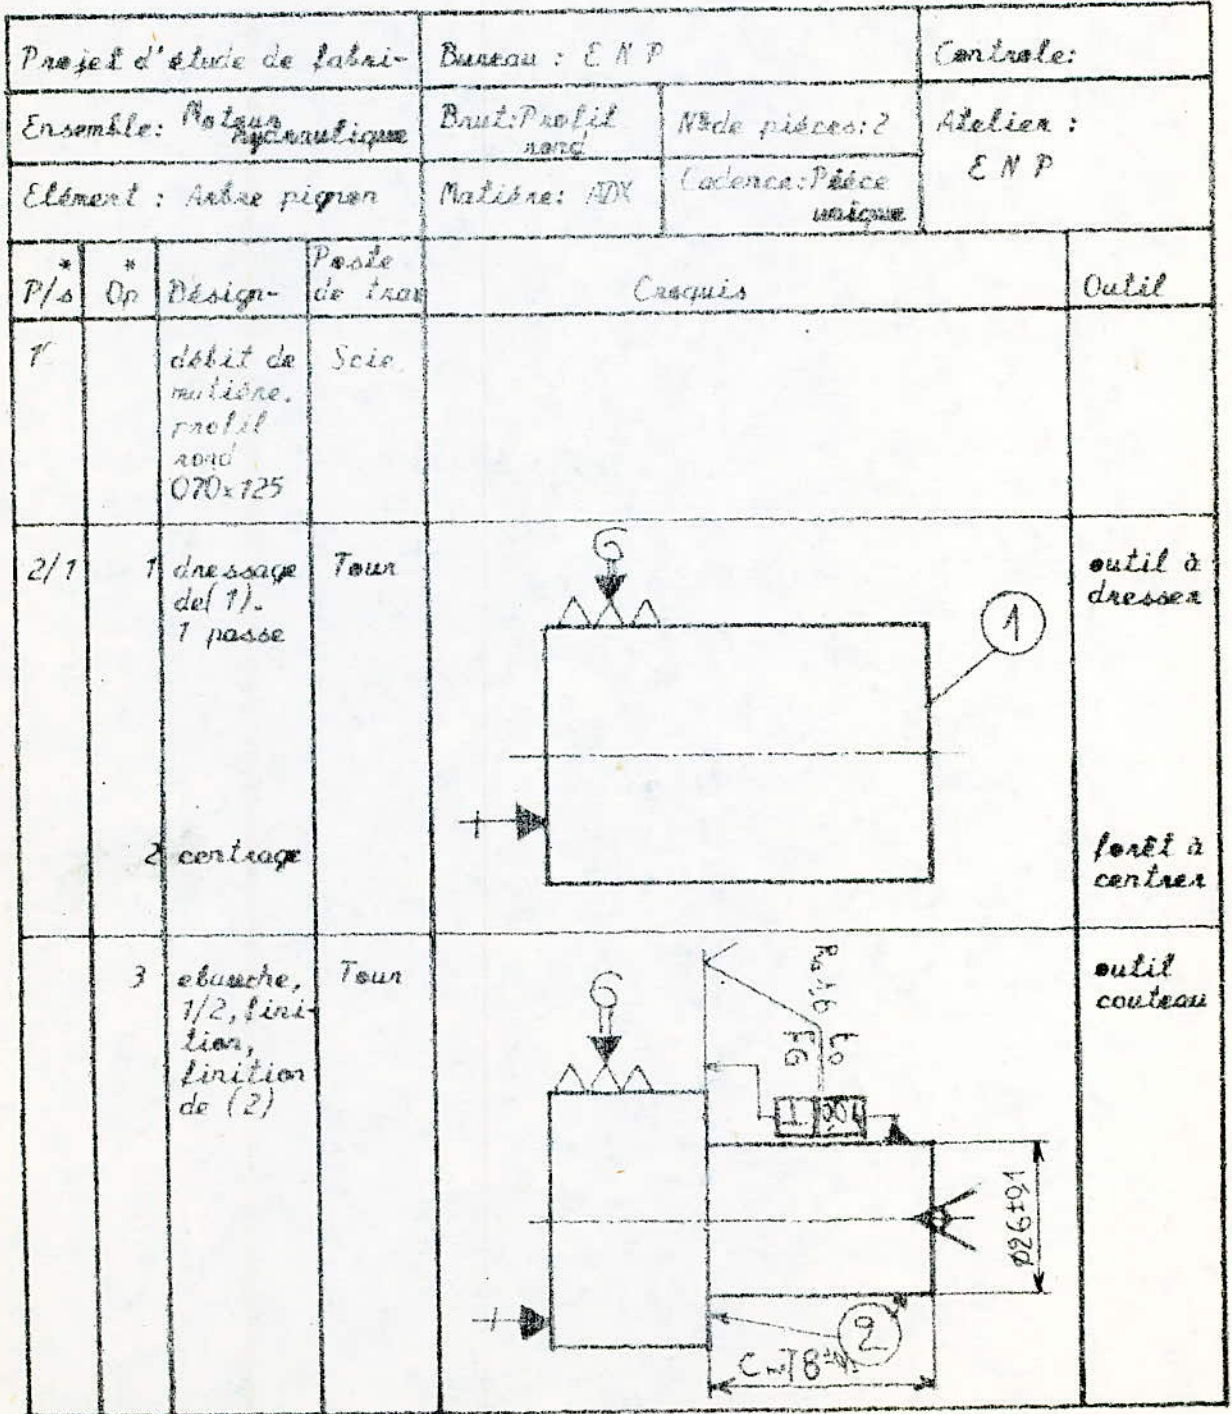 Projet d'étude de fabri-
Bureau : E N P
Controle:
Ensemble: Moteur hydraulique
Brut: Profil rond
N°de pièces: 2
Atelier :
E N P
Elément : Arbre pignon
Matière: ADX
Cadence: Pièce unique
P/s*
Op*
Désign-
Poste de trav
Croquis
Outil
1
débit de
matière.
profil
rond
O70x125
Scie
2/1
1
dressage
de( 1).
1 passe
Tour
1
outil à
dresser
2
centrage
forêt à
centrer
3
ebauche,
1/2, fini-
tion,
finition
de (2)
Tour
Ra 1,6
to
FG
⊥
Ø26±0,1
2
outil
couteau